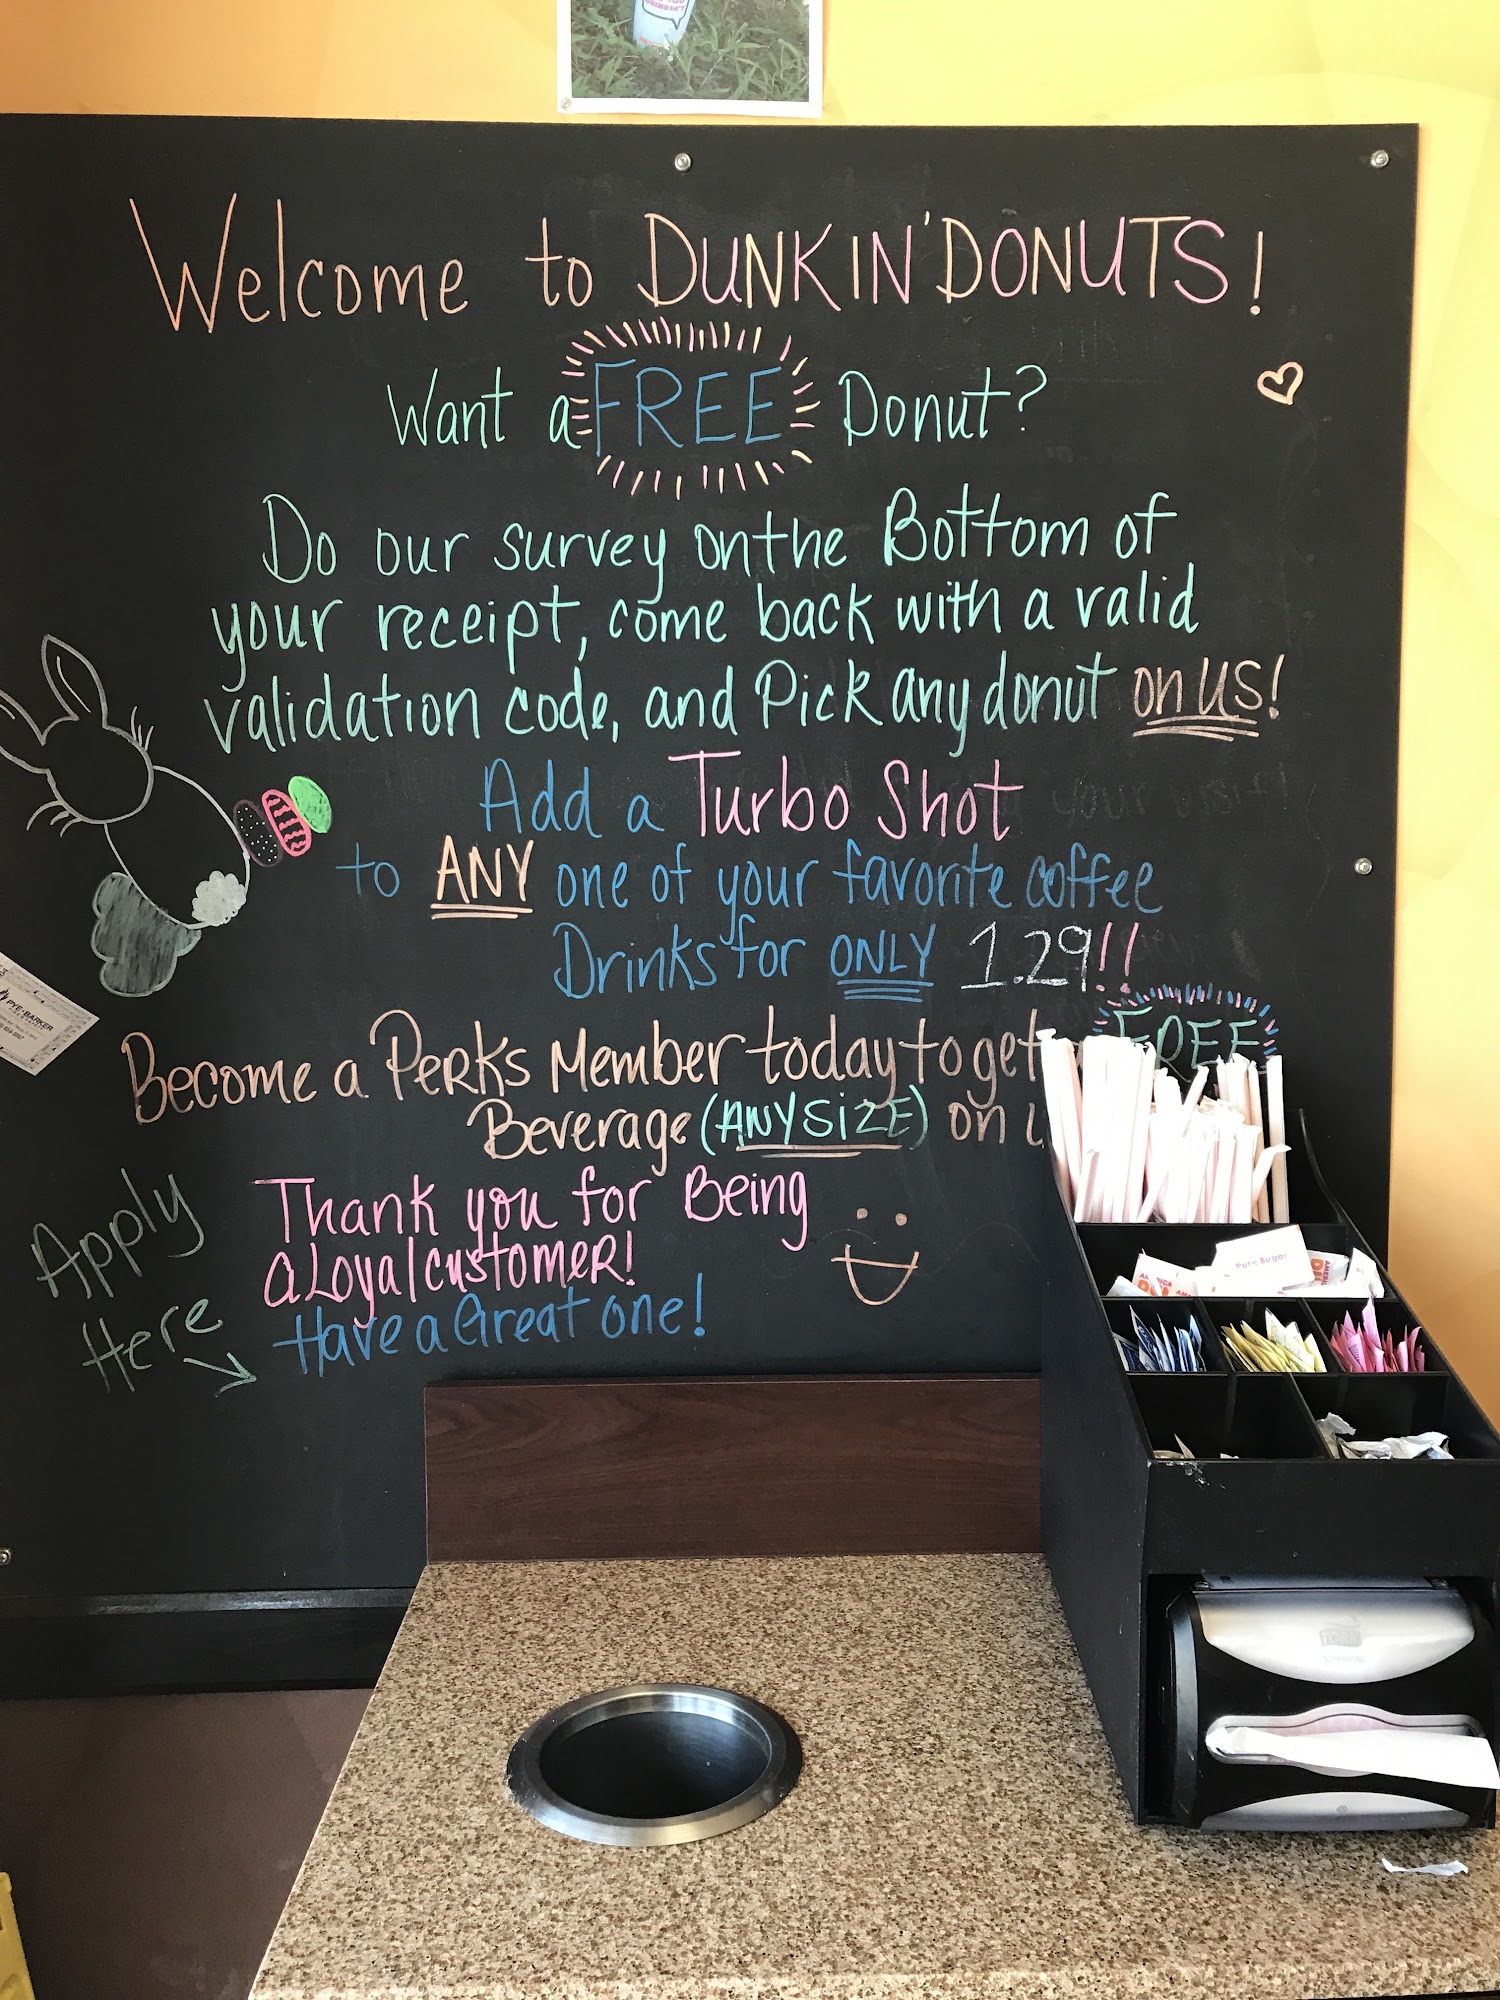 Welcome to DUNKIN' DONUTS!
Want a FREE Donut?
Do our survey on the Bottom of
your receipt, come back with a valid
validation code, and Pick any donut on us!
Add a Turbo Shot
to ANY one of your favorite coffee
Drinks for ONLY 1.29!!
Become a PERKS Member today to get FREE
Beverage (ANY SIZE) on
Apply
Here
Thank you for Being
a Loyal customer!
Have a Great one!
PYE-BARKER
Pure Sugar
TORK
Xpressnap